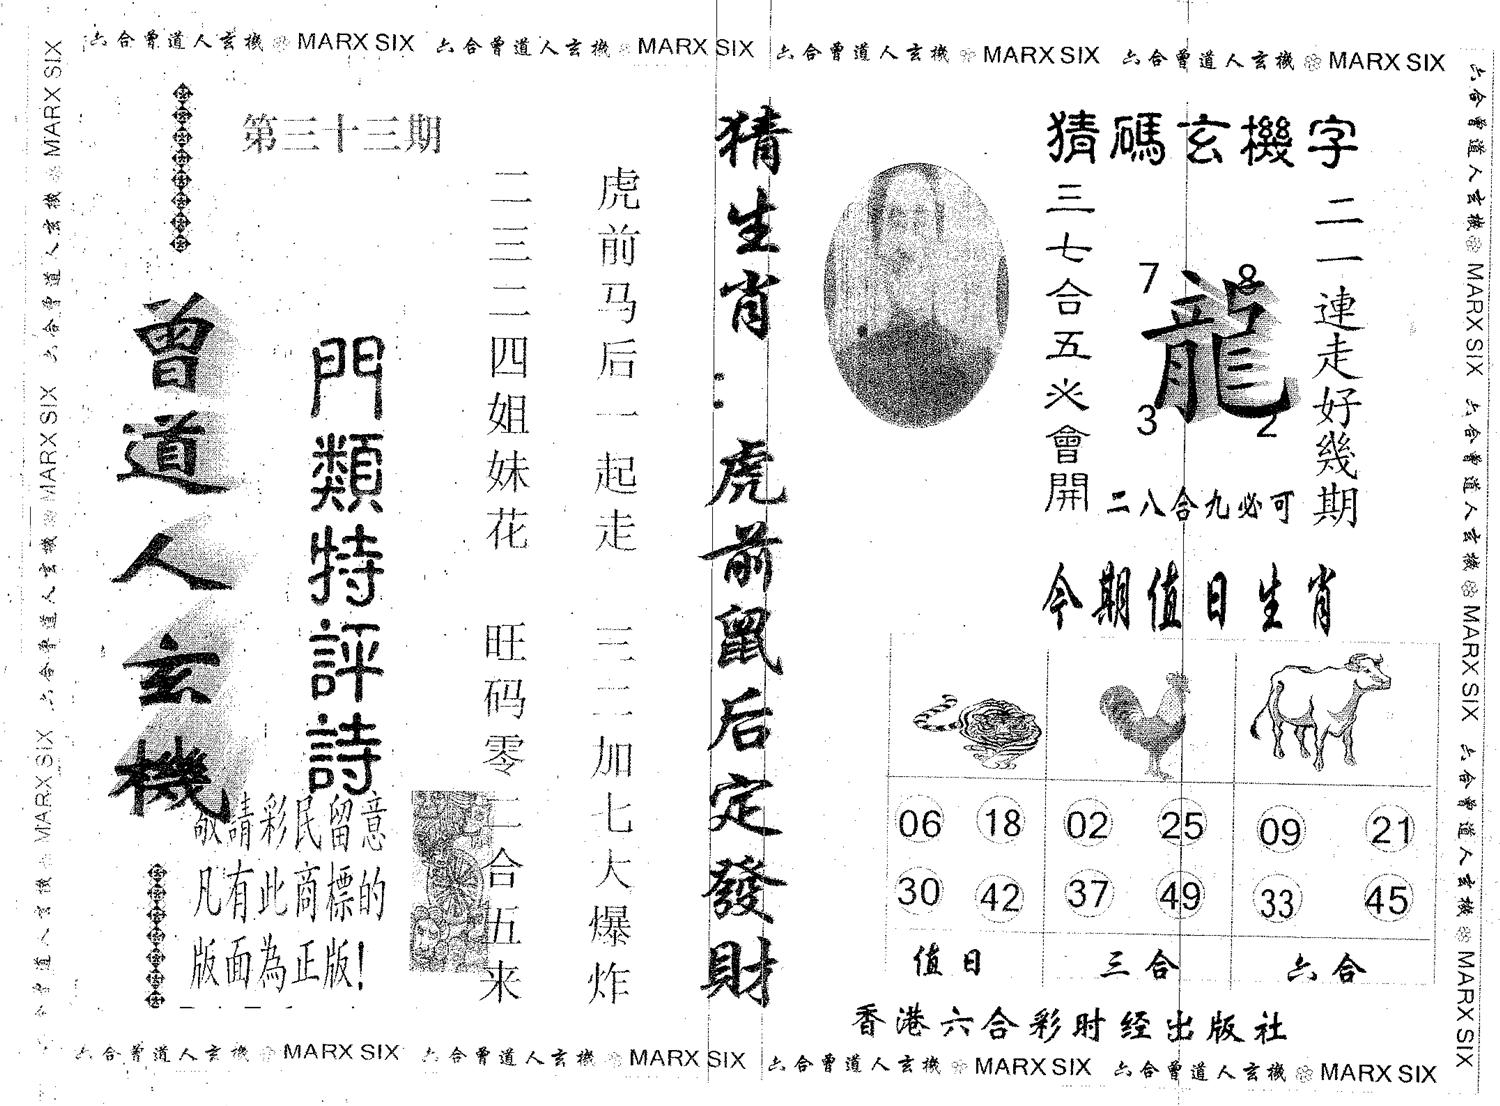 六合曾道人玄機 MARX SIX 六合曾道人玄機 MARX SIX 六合曾道人玄機 MARX SIX 六合曾道人玄機 MARX SIX
六合曾道人玄機 MARX SIX 六合曾道人玄機 MARX SIX 六合曾道人玄機 MARX SIX
第三十三期
曾道人玄機
門類特評詩
虎前马后一起走 三二加七大爆炸
二三二四姐妹花 旺码零二合五来
敬請彩民留意
凡有此商標的
版面為正版!
猜生肖：虎前鼠后定發財
猜碼玄機字
二一連走好幾期
三七合五必會開
7 8
龍
3 2
二八合九必可
今期值日生肖
06 18 02 25 09 21
30 42 37 49 33 45
值日 三合 六合
香港六合彩时经出版社
六合曾道人玄機 MARX SIX 六合曾道人玄機 MARX SIX 六合曾道人玄機 MARX SIX
六合曾道人玄機 MARX SIX 六合曾道人玄機 MARX SIX 六合曾道人玄機 MARX SIX 六合曾道人玄機 MARX SIX